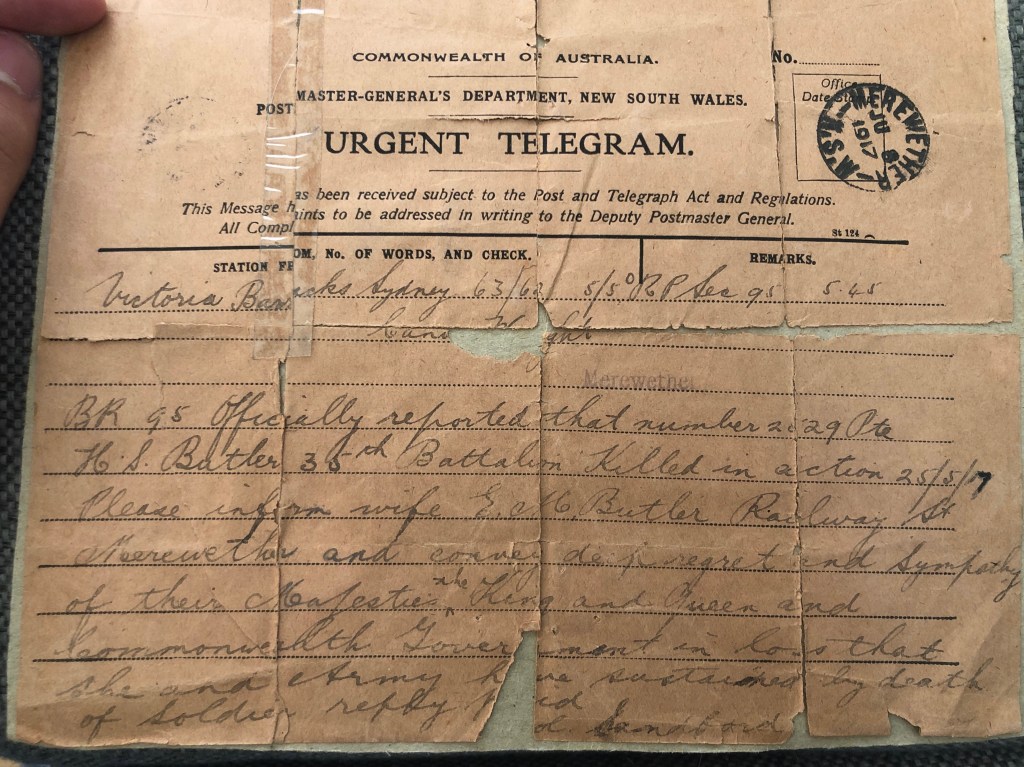 COMMONWEALTH OF AUSTRALIA.
No.
POSTMASTER-GENERAL'S DEPARTMENT, NEW SOUTH WALES.
Office
Date Sta
MEREWETHER
JU 8
1917
N.S.W
URGENT TELEGRAM.
This Message has been received subject to the Post and Telegraph Act and Regulations.
All Complaints to be addressed in writing to the Deputy Postmaster General.
St 124
STATION FROM, No. OF WORDS, AND CHECK.
REMARKS.
Victoria Barracks Sydney 63/62 5/5 RP Sec 95 5.45
Merewether
BR 95 Officially reported that number 2 29 Pte
H. S. Butler 35th Battalion Killed in action 25/5/17
Please inform wife E. M. Butler Railway St
Merewether and convey deep regret and Sympathy
of their Majesties the King and Queen and
Commonwealth Government in loss that
she and Army have sustained by death
of soldier reply paid